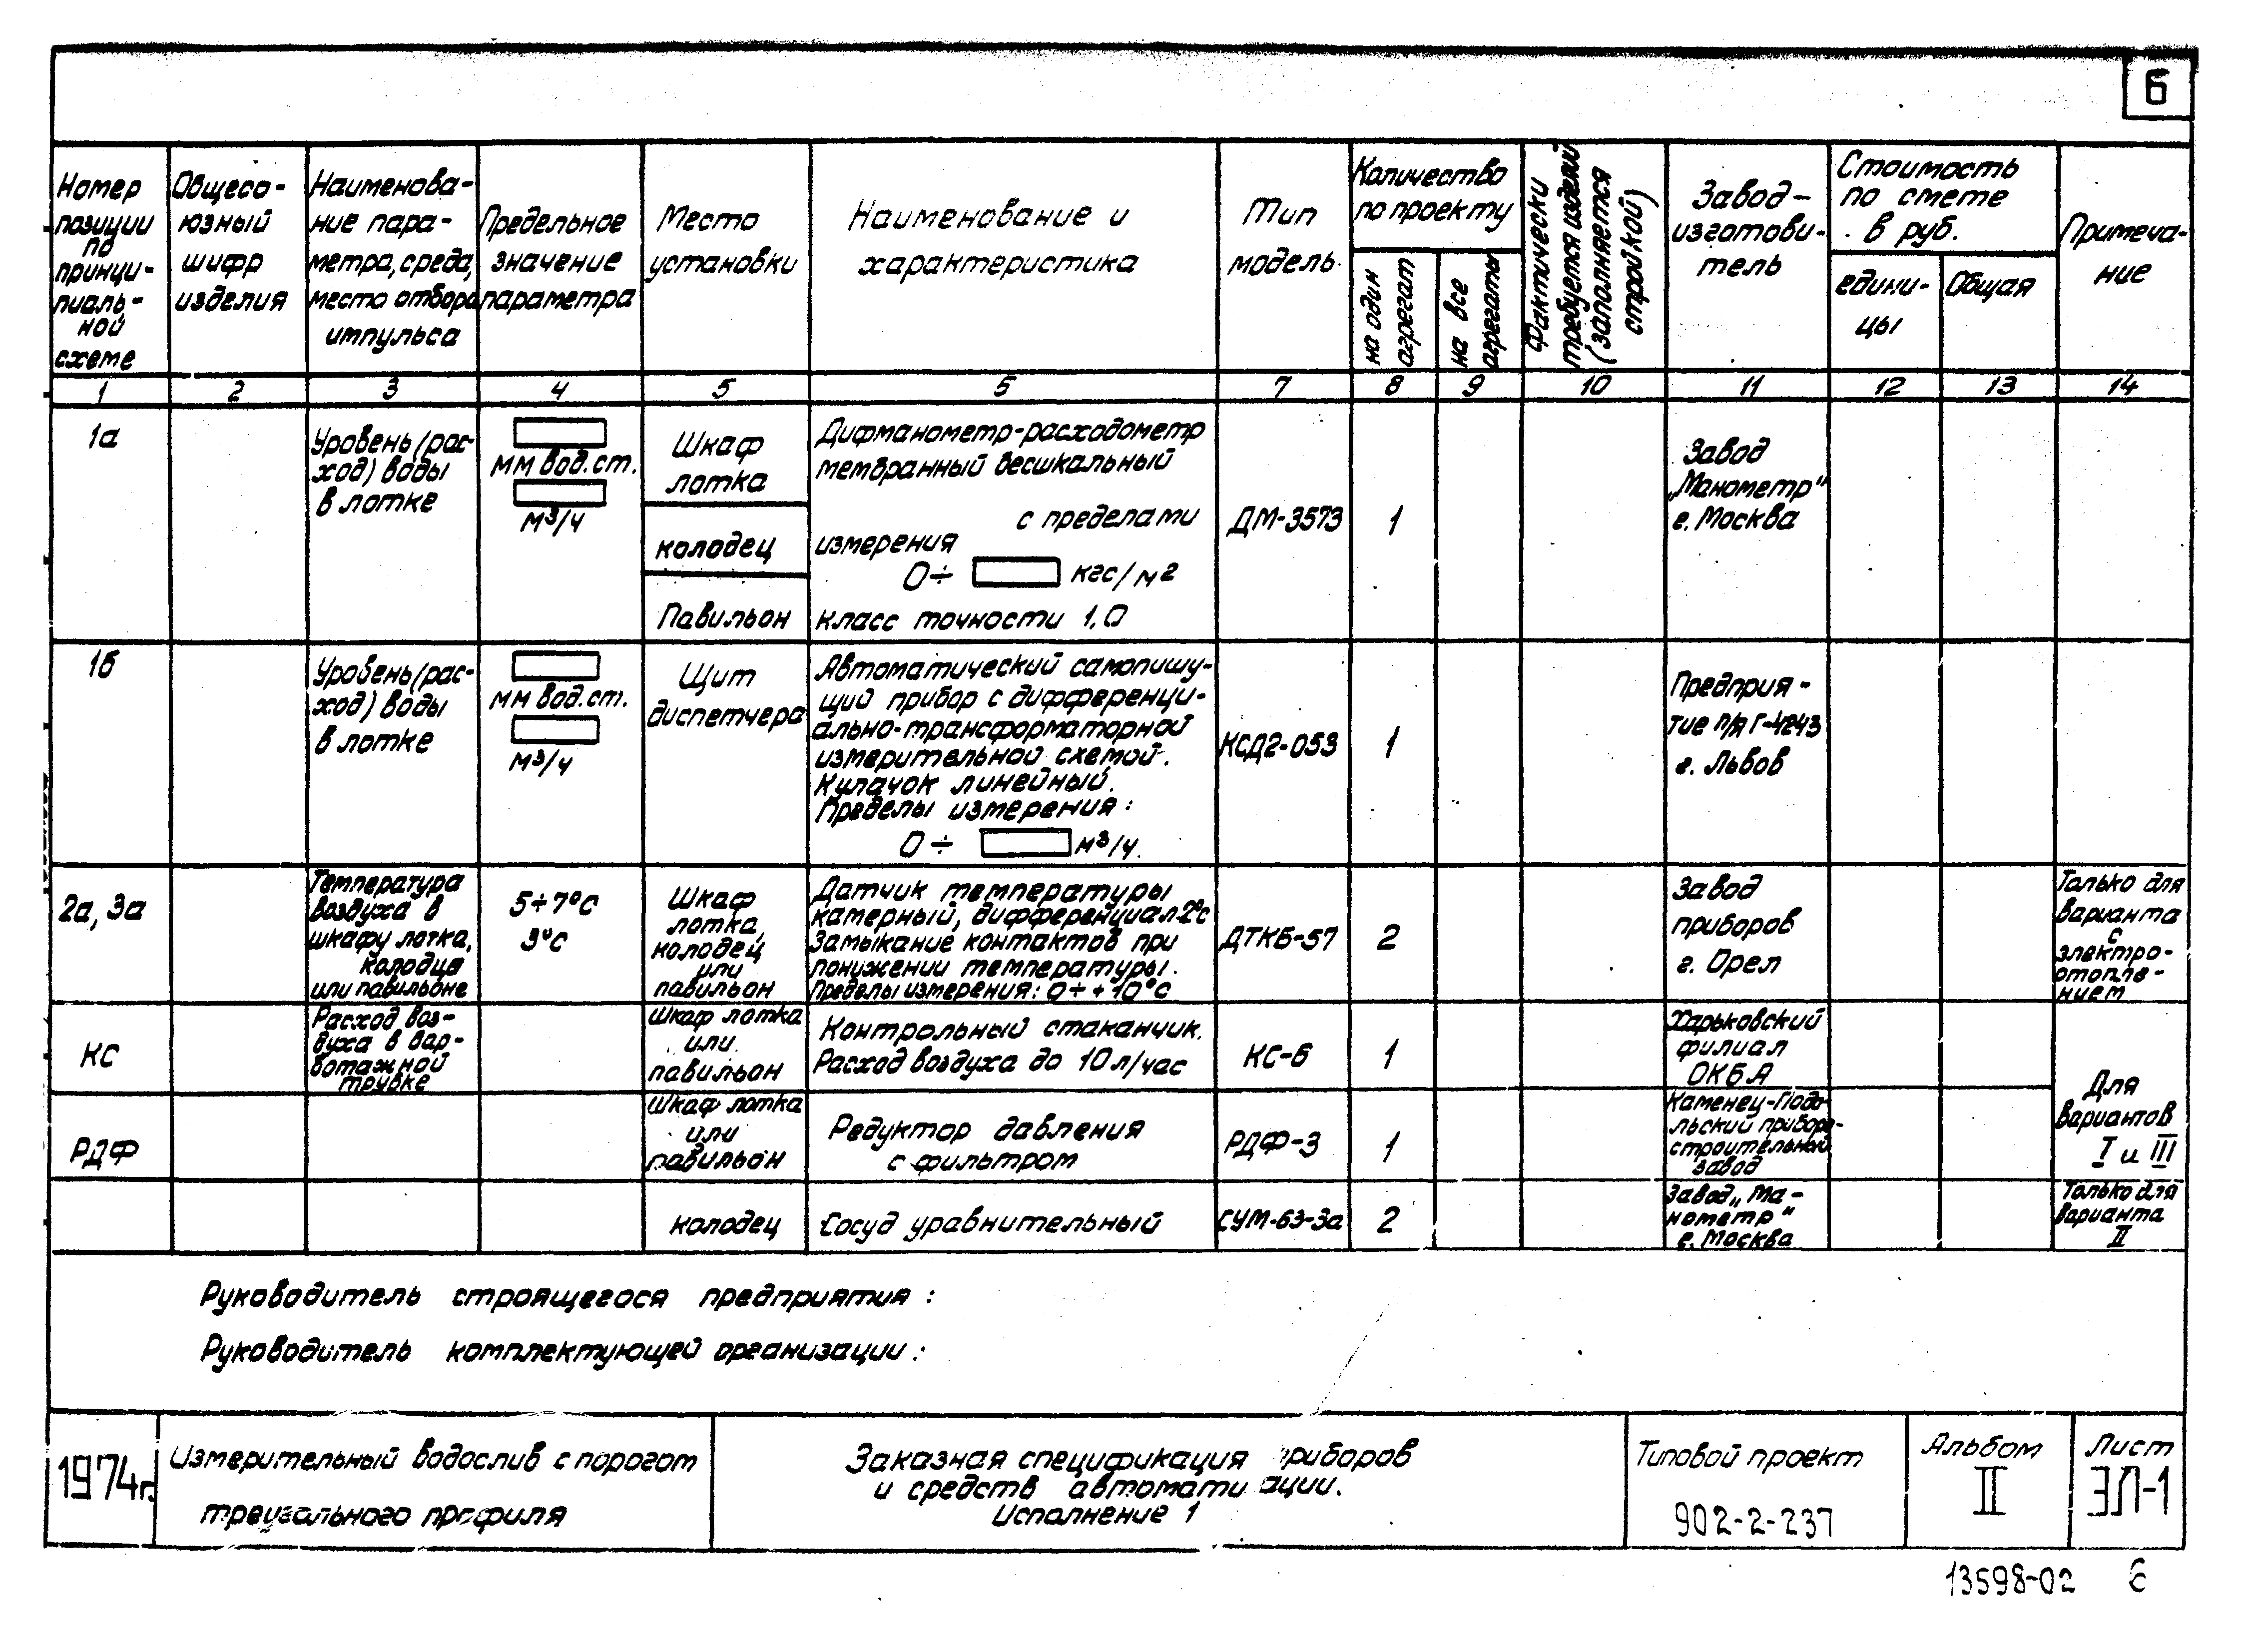 6
Номер
позиции
по
принци-
пиаль-
ной
схеме
Общесо-
юзный
шифр
изделия
Наименова-
ние пара-
метра, среда,
место отбора
импульса
Предельное
значение
параметра
Место
установки
Наименование и
характеристика
Тип
модель
Количество
по проекту
на один
агрегат
на все
агрегаты
Фактически
требуется изделий
(заполняется
стройкой)
Завод-
изготови-
тель
Стоимость
по смете
в руб.
едини-
цы
Общая
Примеча-
ние
1 2 3 4 5 6 7 8 9 10 11 12 13 14
1а
Уровень (рас-
ход) воды
в лотке
мм вод. ст.
м³/ч
Шкаф
лотка
колодец
Павильон
Дифманометр-расходометр
мембранный бесшкальный
с пределами
измерения
0÷ кгс/м²
класс точности 1,0
ДМ-3573
1
Завод
„Манометр"
г. Москва
1б
Уровень (рас-
ход) воды
в лотке
мм вод. ст.
м³/ч
Щит
диспетчера
Автоматический самопишу-
щий прибор с дифференци-
ально-трансформаторной
измерительной схемой.
Кулачок линейный.
Пределы измерения:
0÷ м³/ч.
КСД2-053
1
Предприя-
тие п/я Г-4243
г. Львов
2а, 3а
Температура
воздуха в
шкафу лотка,
колодце
или павильоне
5÷7°С
3°С
Шкаф
лотка,
колодец
или
павильон
Датчик температуры
камерный, дифференциал-2°с
Замыкание контактов при
понижении температуры.
Пределы измерения: 0÷+10°С
ДТКБ-57
2
Завод
приборов
г. Орел
Только для
варианта
с
электро-
отопле-
нием
КС
Расход воз-
духа в бар-
ботажной
трубке
Шкаф лотка
или
павильон
Контрольный стаканчик.
Расход воздуха до 10 л/час
КС-6
1
Харьковский
филиал
ОКБА
Для
вариантов
I и III
РДФ
Шкаф лотка
или
павильон
Редуктор давления
с фильтром
РДФ-3
1
Каменец-Подо-
льский приборо-
строительный
завод
колодец
Сосуд уравнительный
СУМ-63-3а
2
Завод „Ма-
нометр"
г. Москва
Только для
варианта
II
Руководитель строящегося предприятия:
Руководитель комплектующей организации:
1974г.
Измерительный водослив с порогом
треугольного профиля
Заказная спецификация приборов
и средств автоматизации.
Исполнение 1
Типовой проект
902-2-237
Альбом
II
Лист
ЭЛ-1
13598-02 6